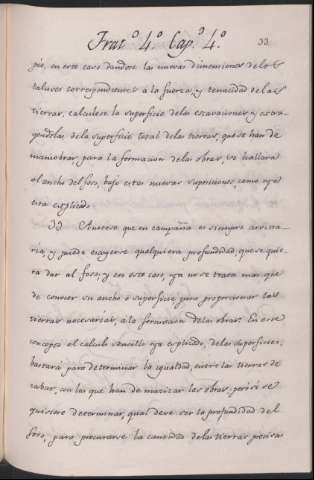 Trat.º 4.º Cap.º 4.º
33
pio, en este caso dandose las nuevas dimensiones de los
taluses correspondientes a la fuerza, y tenacidad de las
tierras, calculese la superficie de las escavaciones, y
de la superficie total de las tierras, que se han de
maniobrar para la formacion de las obras, se hallará
el ancho del foso, bajo estas nuevas suposiciones, como ya
está esplicado.
33 Aunque que en campaña es siempre
y puede escojerse qualquiera profundidad, que se quie
ra dar al foso; y en este caso, ya no se trata mas, que
de conocer su ancho ó superficie para proporcionar las
tierras necesarias, á la formacion de las obras. En este
concepto el calculo sencillo ya esplicado, de las superficies,
bastará para determinar la igualdad, entre las tierras de
cabar, con las que han de macizar las obras, pero si se
quisiere determinar, qual deve ser la profundidad del
foso, para procurarse la cantidad de las tierras precisas